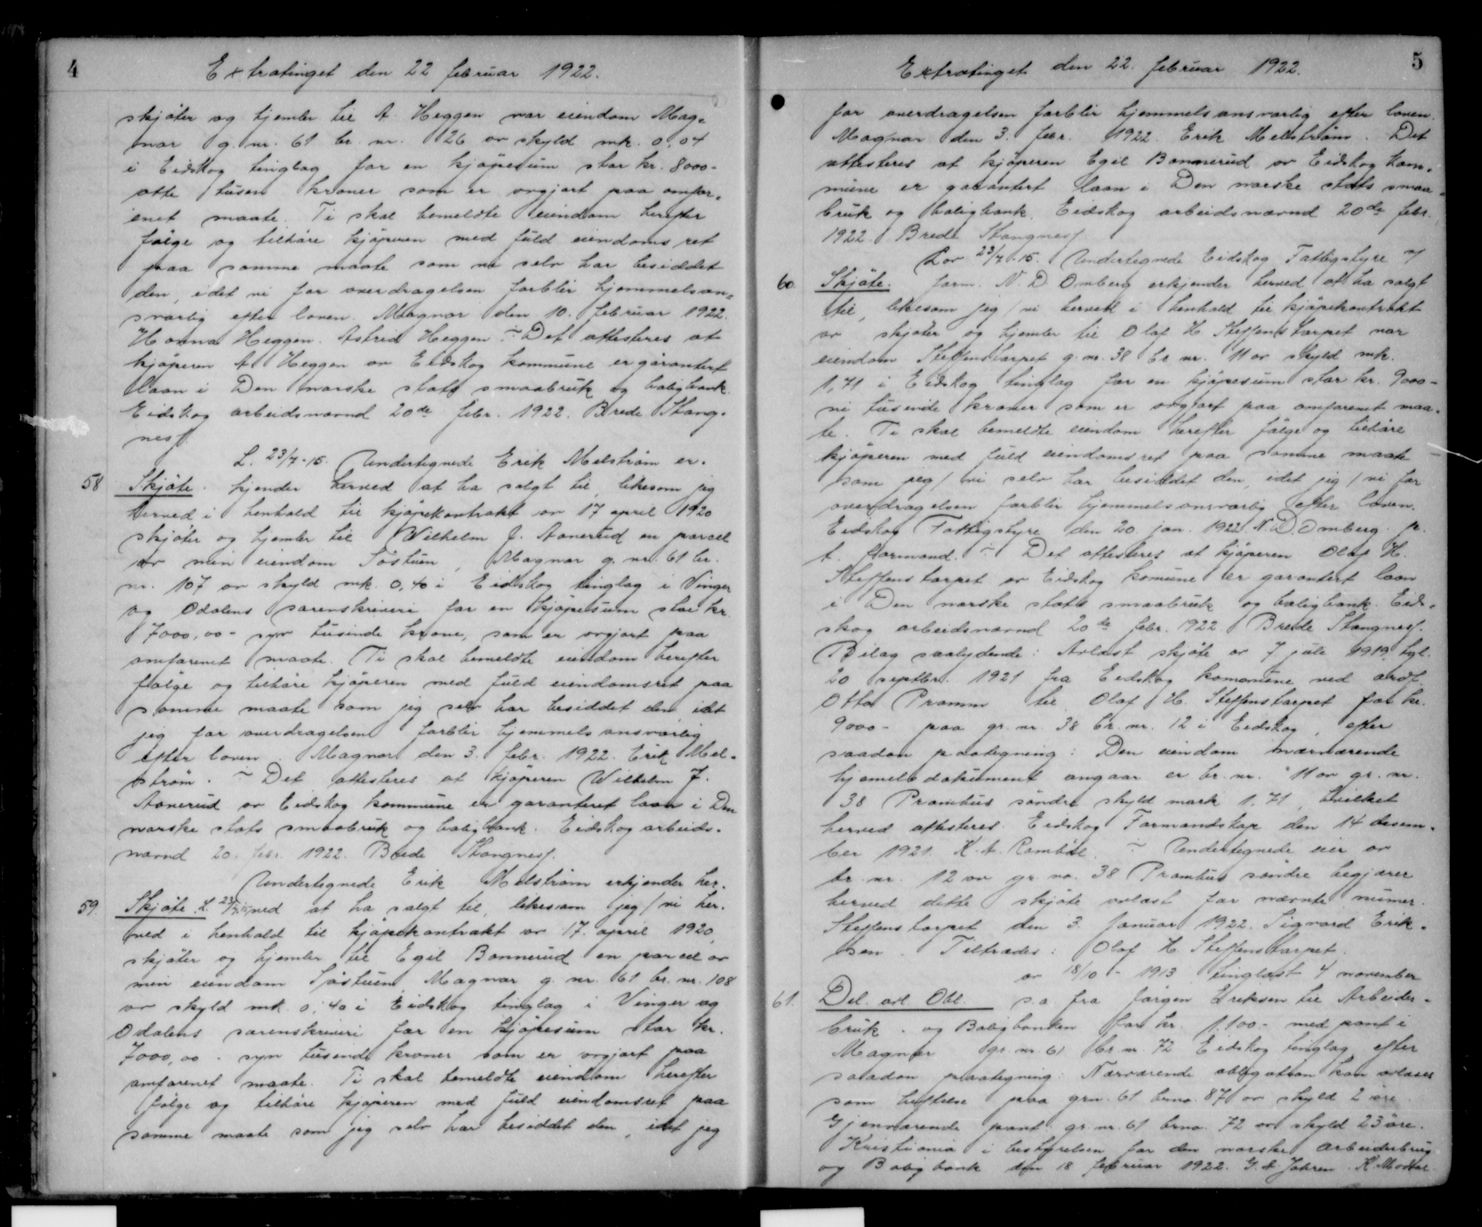 4
Extratinget den 22 februar 1922.
skjöter og hjemler til A. Heggen vor eiendom Mag-
nor g. nr. 61 br. nr. 126 av skyld mk. 0,04
i Eidskog tinglag for en kjöpesum stor kr. 8000-
otte tusen kroner som er avgjort paa omfor-
enet maate. Ti skal bemeldte eiendom herefter
følge og tilhöre kjöperen med fuld eiendomsret
paa samme maate som vi selv har besiddet
den, idet vi for overdragelsen forblir hjemmelsan-
svarlig efter loven. Magnor den 10. februar 1922.
Hanna Heggen. Astrid Heggen. ~ Det attesteres at
kjöperen A Heggen av Eidskog kommune er garantert
laan i Den norske stats smaabruk og boligbank.
Eidskog arbeidsnævnd 20de febr. 1922. Brede Stang-
ness
L. 23/7-15. Undertegnede Erik Melström er-
58 Skjöte. kjender herved at ha solgt til, likesom jeg
herved i henhold til kjöpekontrakt av 17 april 1920
skjöter og hjemler til Wilhelm J. Aanerud en parcel
av min eiendom Tostuen, Magnor g. nr. 61 br.
nr. 107 av skyld mk. 0,40 i Eidskog tinglag i Vinger
og Odalens sorenskriveri for en kjöpesum stor kr.
7000,00 - syv tusinde krone, som er avgjort paa
omforenet maate. Ti skal bemeldte eiendom herefter
fölge og tilhöre kjöperen med fuld eiendomsret paa
samme maate som jeg selv har besiddet den idet
jeg for overdragelsen forblir hjemmelsansvarlig
efter loven. Magnor den 3. febr. 1922. Erik Mel-
ström. ~ Det attesteres at kjöperen Wilhelm J.
Aanerud av Eidskog kommune er garanteret laan i Den
norske stats smaabruk og boligbank. Eidskog arbeids-
nævnd 20. febr. 1922. Brede Stangness.
Undertegnede Erik Melström erkjender her-
59. Skjöte. L. 23/7-15. ved at ha solgt til, likesom jeg/vi her-
ved i henhold til kjöpekontrakt av 17. april 1920,
skjöter og hjemler til Egil Bonnerud en parcel av
min eiendom Tostuen Magnor g. nr. 61 br. nr. 108
av skyld mk. 0,40 i Eidskog tinglag i Vinger og
Odalens sorenskriveri for en kjöpesum stor kr.
7000,00 - syv tusende kroner som er avgjort paa
omforenet maate. Ti skal bemeldte eiendom herefter
fölge og tilhöre kjöperen med fuld eiendomsret paa
samme maate som jeg selv har besiddet den, idet jeg
5
Extratinget den 22. februar 1922.
for overdragelsen forblir hjemmelsansvarlig efter loven.
Magnor den 3. febr. 1922. Erik Mellström. Det
attesteres at kjöperen Egil Bonnerud av Eidskog kom-
mune er garantert laan i Den norske stats smaa-
bruk og boligbank. Eidskog arbeidsnævnd 20de febr.
1922 Brede Stangness
Lov 23/7-15. Undertegnede Eidskog Fattigstyre v/
60 Skjöte. form. N. D. Omberg erkjender herved at ha solgt
til, likesom jeg/vi herved i henhold til kjöpekontrakt
av skjöter og hjemler til Olaf H Steffenstorpet vor
eiendom Steffenstorpet g. nr. 38 br. nr. 11 av skyld mk.
1,71 i Eidskog tinglag for en kjöpesum stor kr. 9000-
ni tusende kroner som er avgjort paa omforenet maa-
te. Ti skal bemeldte eiendom herefter fölge og tilhöre
kjöperen med fuld eiendomsret paa samme maate
som jeg/vi selv har besiddet den, idet jeg/vi for
overdragelsen forblir hjemmelsansvarlig efter loven.
Eidskog Fattigstyre den 20 jan. 1922 N. D. Omberg p.
t. formand. ~ Det attesteres at kjöperen Olaf H.
Steffenstorpet av Eidskog komune er garantert laan
i Den norske stats smaabruk og boligbank. Eid-
skog arbeidsnævnd 20de febr. 1922 Brede Stangness.
Bilag saalydende: Avlæst skjöte av 7 juli 1919, tgl.
20 septbr. 1921 fra Eidskog kommune ved ordf.
Otto Pramm til Olaf H. Steffenstorpet for kr.
9000- paa gr. nr. 38 br. nr. 12 i Eidskog, efter
saadan paategning: Den eiendom nærværende
hjemelsdokument angaar er br. nr. 11 av gr. nr.
38 Prambus söndre skyld mark 1,71, hvilket
herved attesteres. Eidskog Formandskap den 14 desem-
ber 1921. K. A. Rambøl. ~ Undertegnede eier av
br. nr. 12 av gr. no. 38 Prambus söndre begjærer
herved dette skjöte avlæst for nævnte numer.
Steffenstorpet den 3. Januar 1922. Sigvard Erik-
sen. Tiltrædes: Olaf H. Steffenstorpet.
av 18/10 - 1913 tinglæst 4 november
61. Del. avl. Obl. s.a. fra Jørgen Eriksen til Arbeider-
bruk- og Boligbanken for kr. 1,100- med pant i
Magnor gr. nr. 61 br. nr. 72 Eidskog tinglag efter
saadan paategning: Nærværende obligation kan avlæses
som heftelse paa grn. 61 brno. 87 av skyld 2 øre.
Gjenværende pant gr. nr. 61 brno. 72 av skyld 23 öre.
Kristiania i bestyrelsen for den norske arbeiderbrug
og Bolig bank den 18 februar 1922.